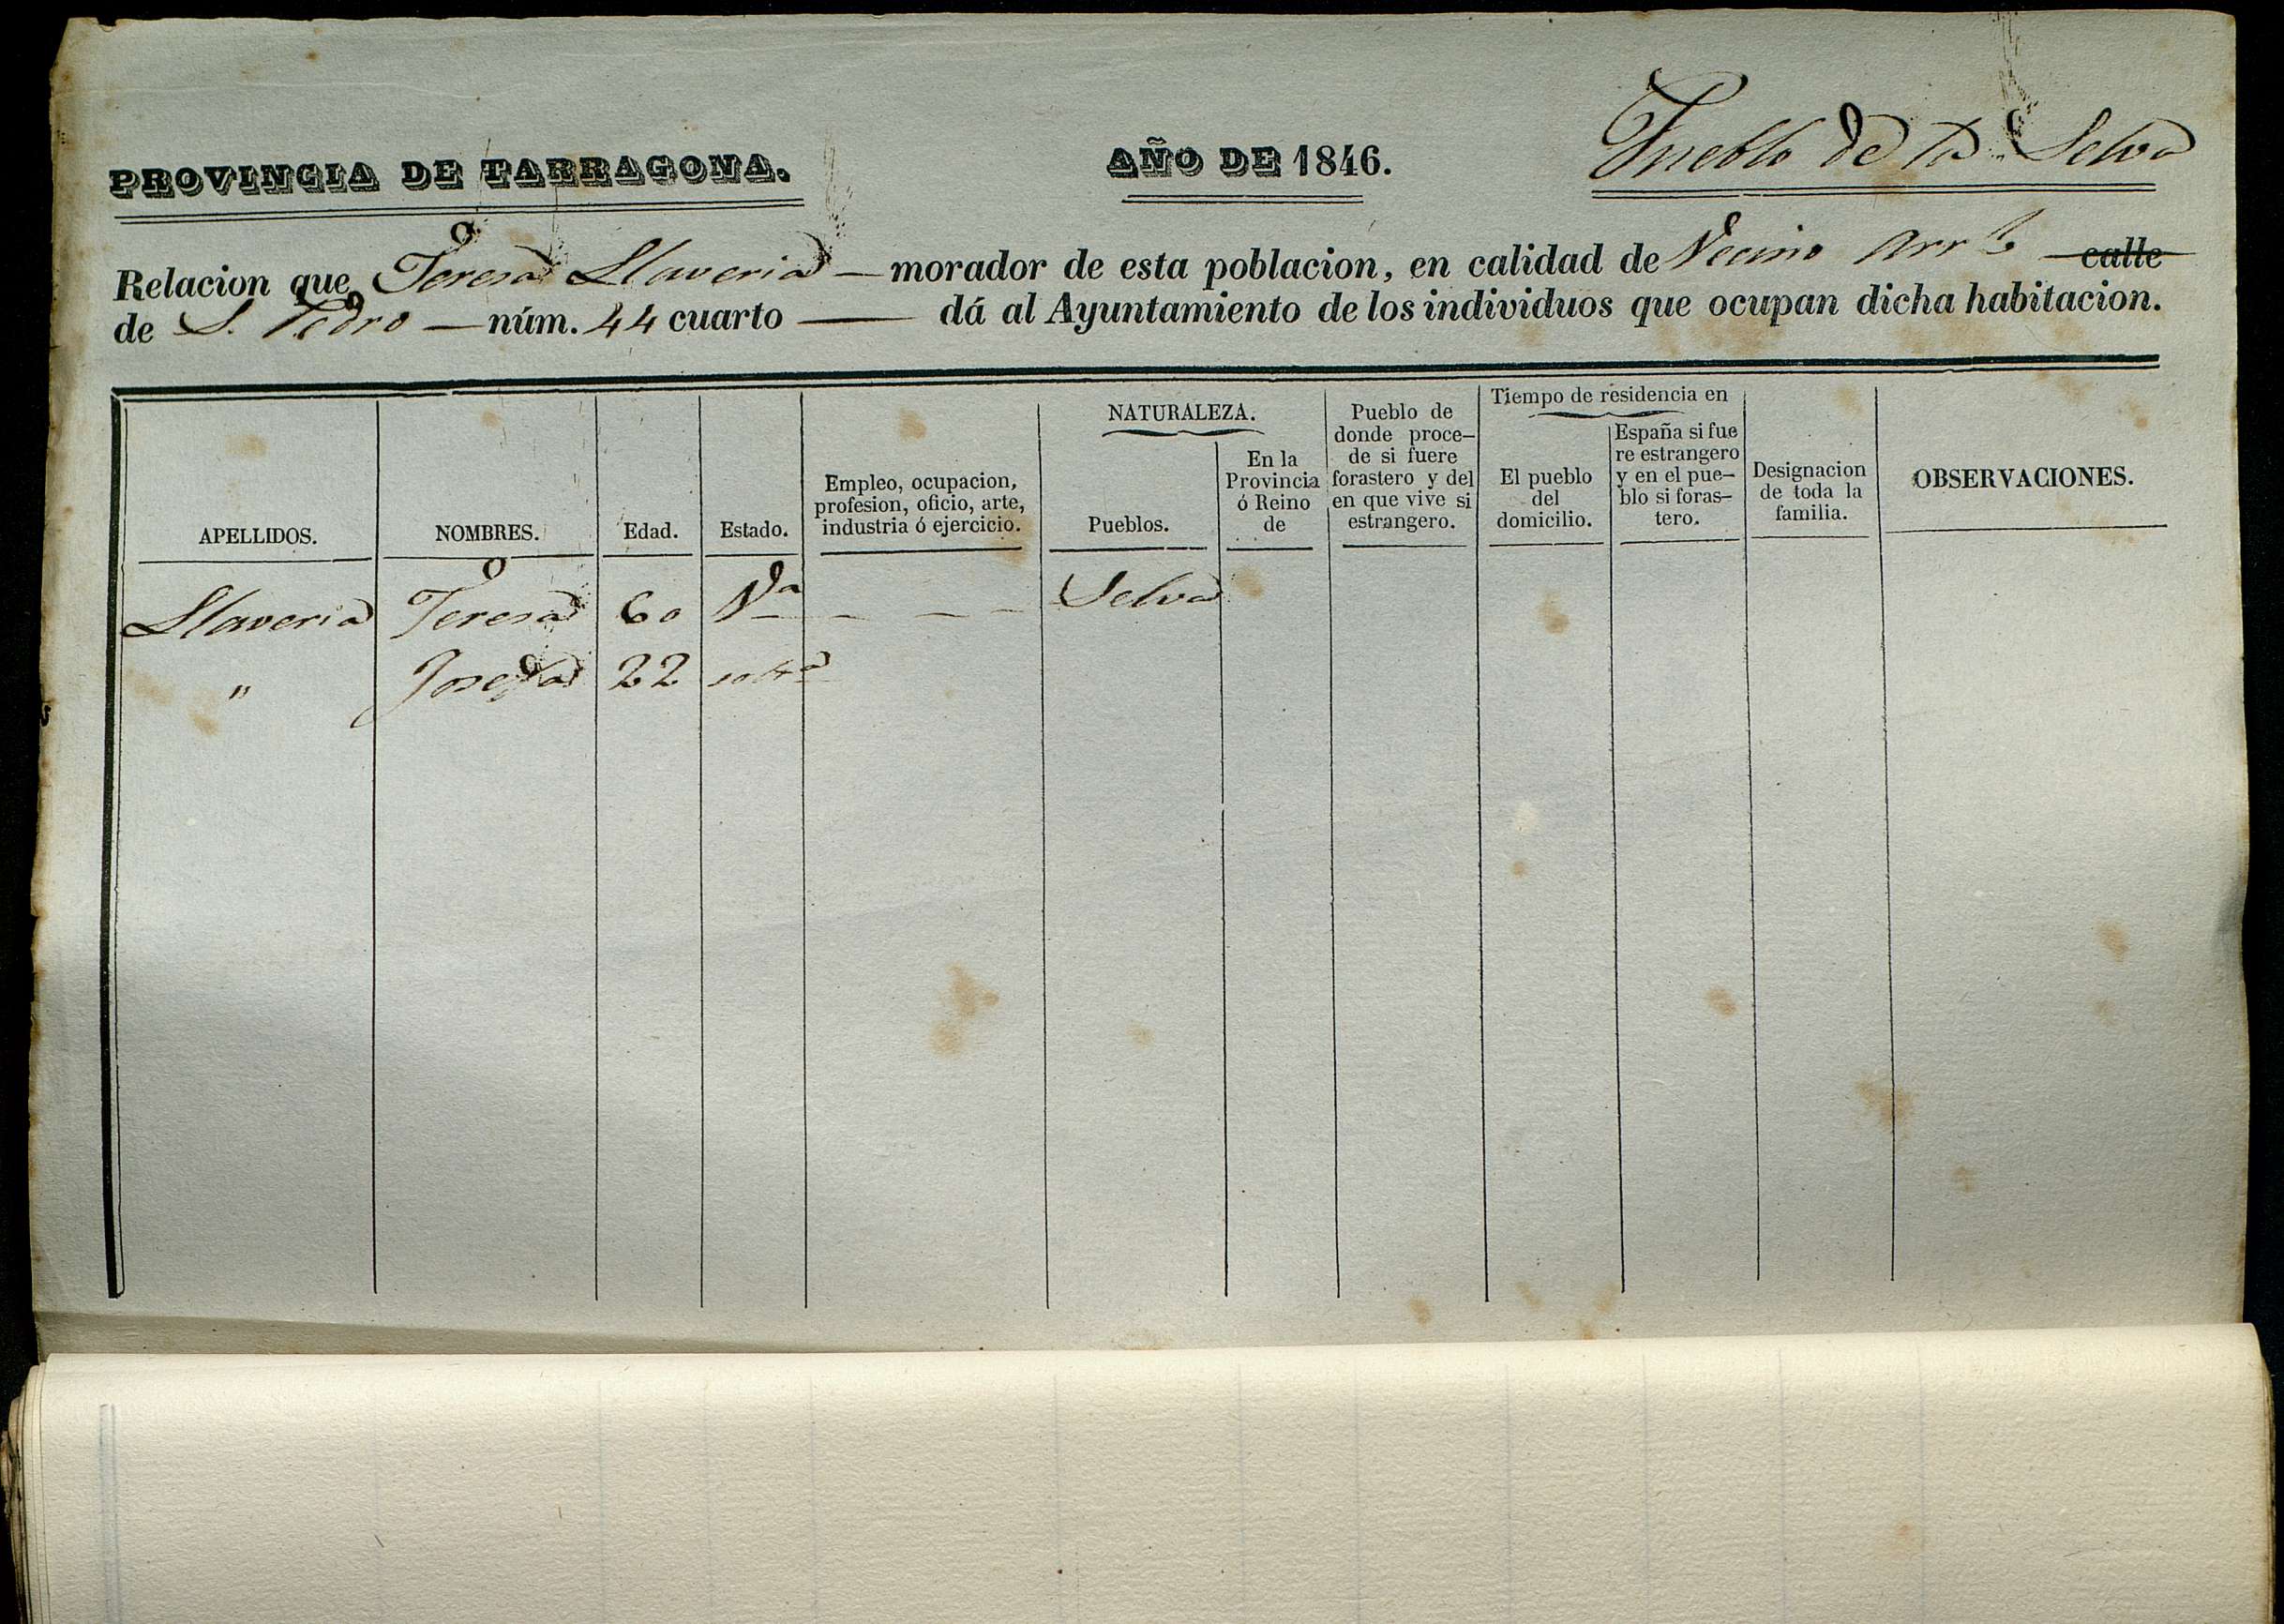 PROVINCIA DE TARRAGONA. AÑO DE 1846. Pueblo de la Selva
Relacion que Teresa Llaveria — morador de esta poblacion, en calidad de Vecino Arr.l calle
de S. Pedro — núm. 44 cuarto — dá al Ayuntamiento de los individuos que ocupan dicha habitacion.
APELLIDOS.
NOMBRES.
Edad.
Estado.
Empleo, ocupacion,
profesion, oficio, arte,
industria ó ejercicio.
NATURALEZA.
Pueblos.
En la
Provincia
ó Reino
de
Pueblo de
donde proce-
de si fuere
forastero y del
en que vive si
estrangero.
Tiempo de residencia en
El pueblo
del
domicilio.
España si fue
re estrangero
y en el pue-
blo si foras-
tero.
Designacion
de toda la
familia.
OBSERVACIONES.
Llaveria Teresa 60 Va — — — Selva
" Josefa 22 solta